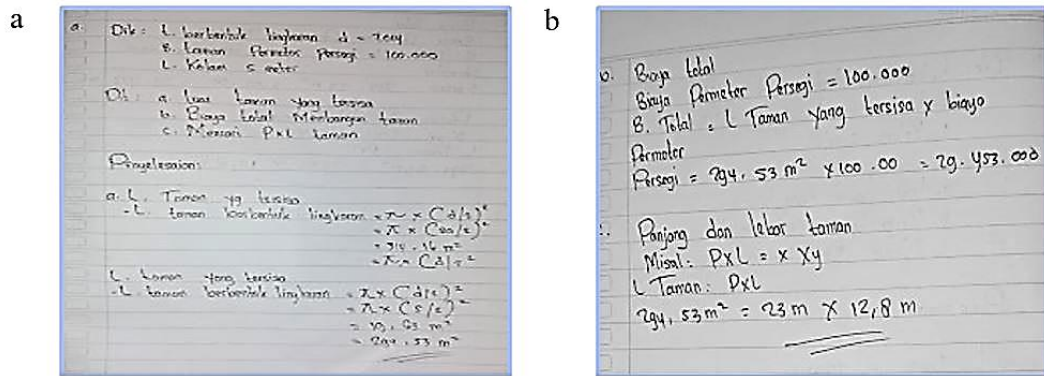 a
a. Dik : L. berbentuk lingkaran d = 20m
B. taman Permeter Persegi = 100.000
L. Kolam 5 meter
Dit : a. luas taman yang tersisa
b. Biaya total Membangun taman
c. Mencari PxL taman
Penyelesaian:
a. L. Taman yg tersisa
- L. taman berbentuk lingkaran = π × (d/2)²
= π × (20/2)²
= m²
= π × (d/2)²
L. taman yang tersisa
- L. taman berbentuk lingkaran = π × (d/2)²
= π × (5/2)²
= 19,63 m²
= 294,53 m²
b
b. Biaya total
Biaya Permeter Persegi = 100.000
B. Total = L Taman yang tersisa x biaya
Permeter
Persegi = 294,53 m² x 100.00 = 29.453.000
c. Panjang dan lebar taman
Misal: PxL = x Xy
L Taman: PxL
294,53 m² = 23 m X 12,8 m